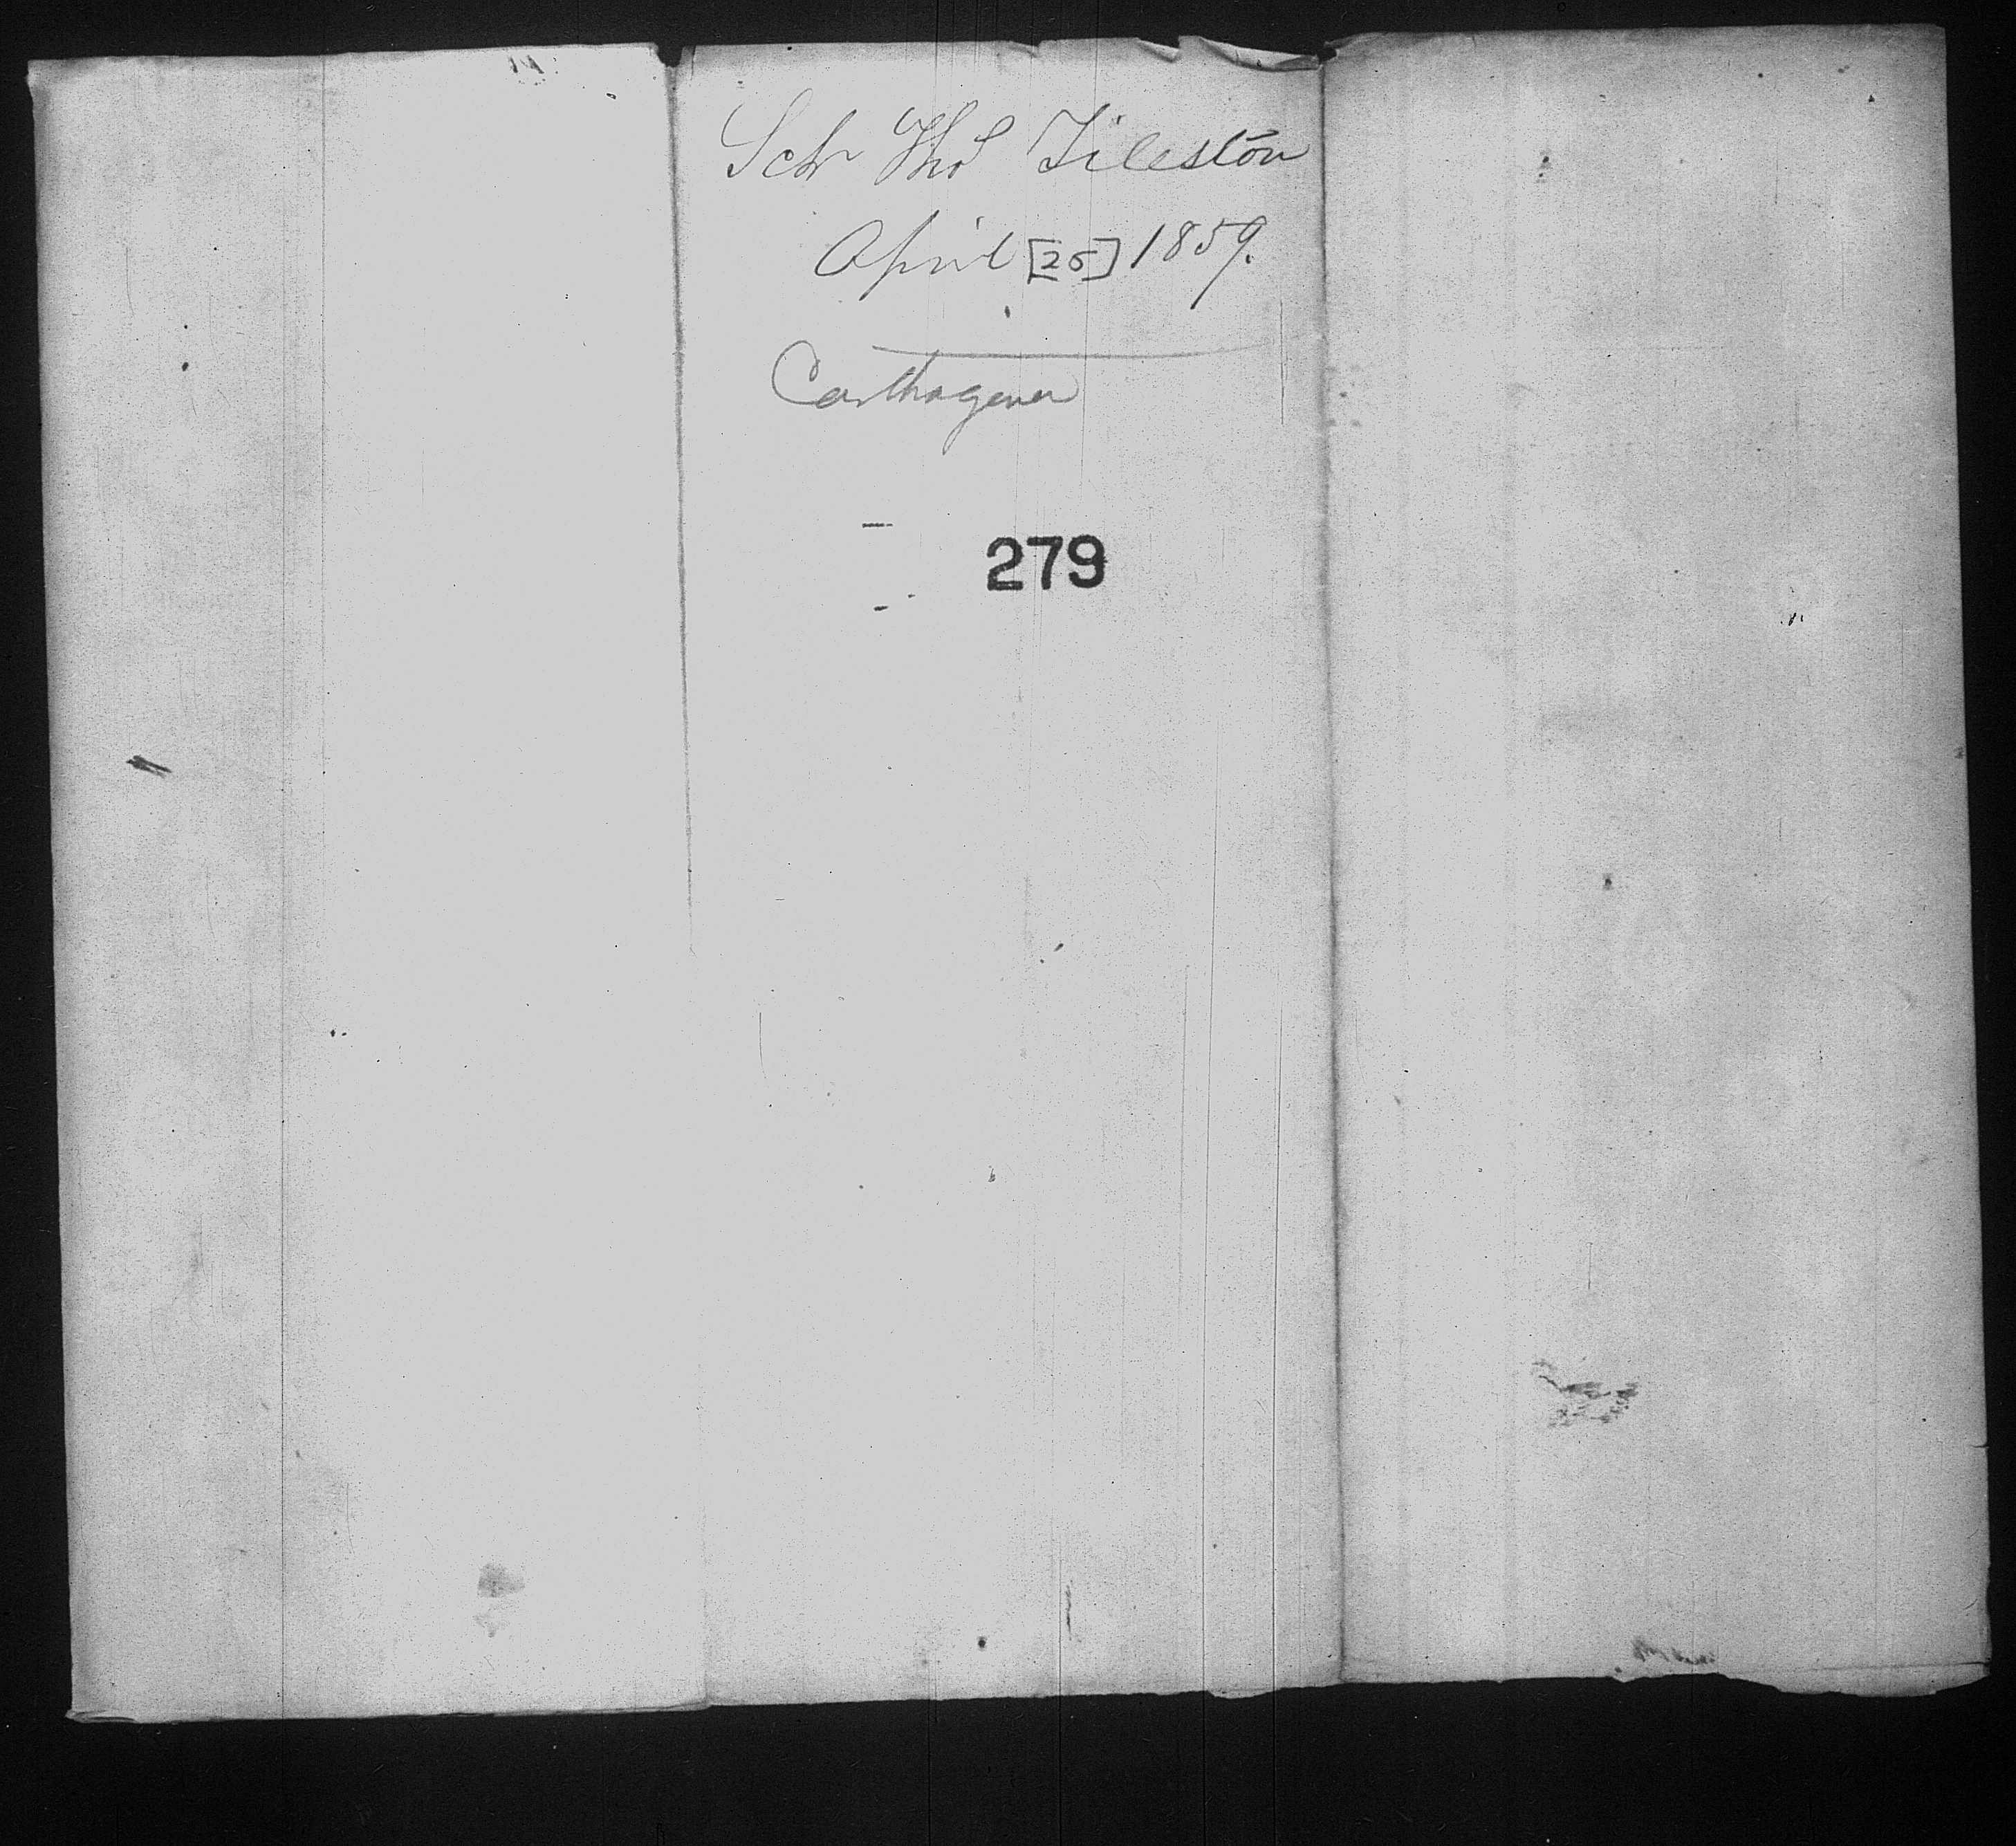 Sch Thos Tileston
April [25] 1859.
Carthagena
279